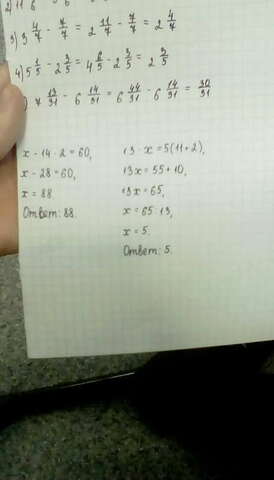 3) 3 4/7 - 7/7 = 2 11/7 - 7/7 = 2 4/7
4) 5 1/5 - 2 3/5 = 4 6/5 - 2 3/5 = 2 3/5
) 7 13/31 - 6 14/31 = 6 44/31 - 6 14/31 = 30/31
x - 14 · 2 = 60,
x - 28 = 60,
x = 88
Ответ: 88.
13 · x = 5(11+2),
13x = 55 + 10,
13x = 65,
x = 65 : 13,
x = 5.
Ответ: 5.